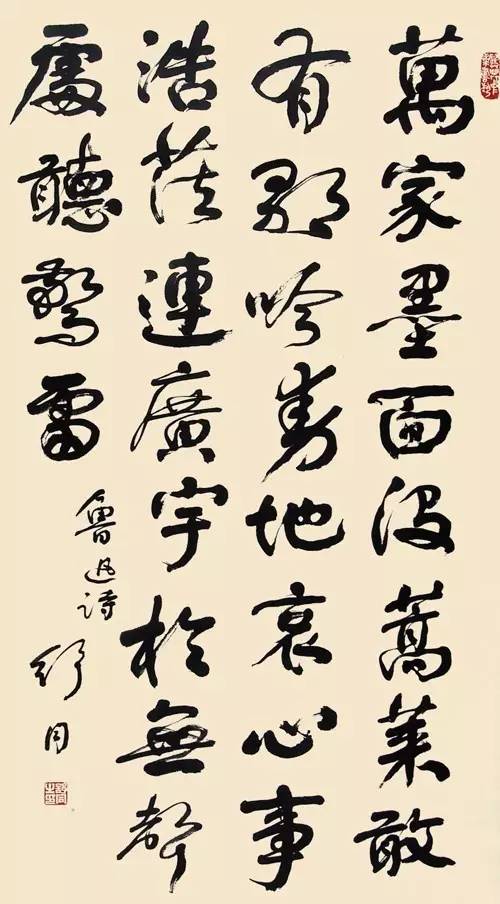 萬家墨面没蒿萊敢
有歌吟動地哀心事
浩茫連廣宇於無聲
處聽驚雷
魯迅詩
舒同